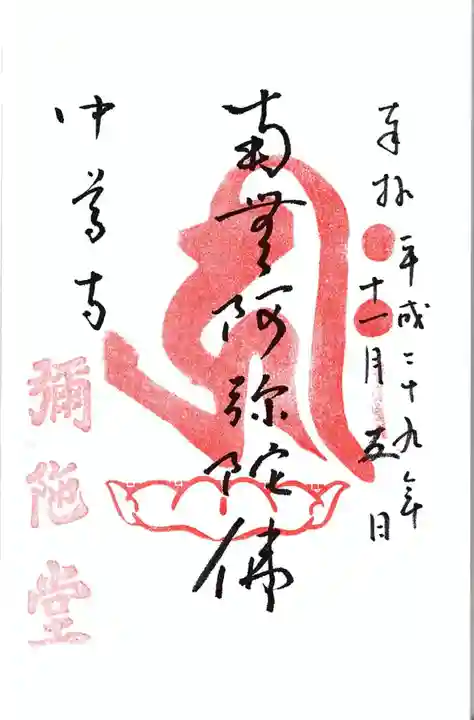 奉拝
平成二十九年
十一月五日
南無阿弥陀佛
中尊寺
彌陀堂